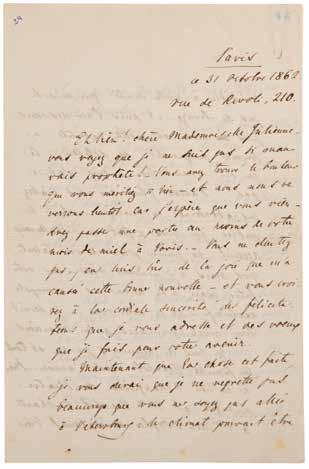 29
Paris
ce 31 octobre 1862.
rue de Rivoli, 210.
Eh bien! chère Mademoiselle Julienne
vous voyez que je ne suis pas si mau-
vais prophète! Vous avez trouvé le bonheur
que vous méritez si bien – et nous nous re-
verrons bientôt. Car j'espère que vous vien-
drez passer une partie au moins de votre
mois de miel à Paris. – Vous ne doutez
pas, j'en suis sûr, de la joie que m'a
causé cette bonne nouvelle – et vous croi-
rez à la cordiale sincérité des félicita-
tions que je vous adresse et des voeux
que je fais pour votre avenir.
Maintenant que la chose est faite,
je vous dirai que je ne regrette pas
beaucoup que vous ne soyez pas allée
à Pétersbourg: le climat pourrait être